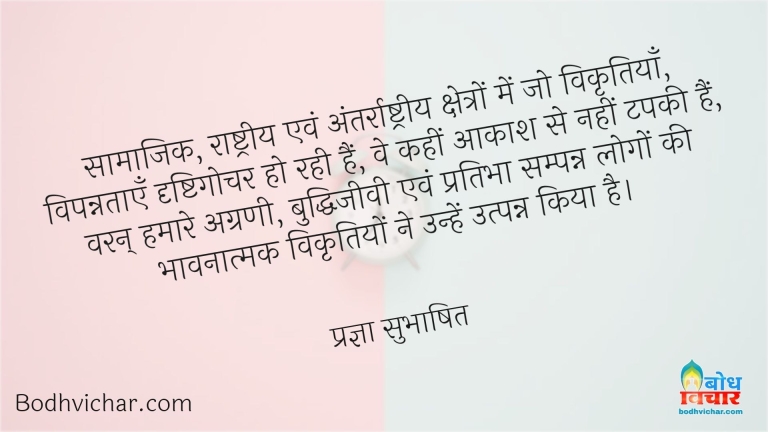 सामाजिक, राष्ट्रीय एवं अंतर्राष्ट्रीय क्षेत्रों में जो विकृतियाँ,
विपन्नताएँ दृष्टिगोचर हो रही हैं, वे कहीं आकाश से नहीं टपकी हैं,
वरन् हमारे अग्रणी, बुद्धिजीवी एवं प्रतिभा सम्पन्न लोगों की
भावनात्मक विकृतियों ने उन्हें उत्पन्न किया है।
प्रज्ञा सुभाषित
Bodhvichar.com
बोध
विचार
bodhvichar.com